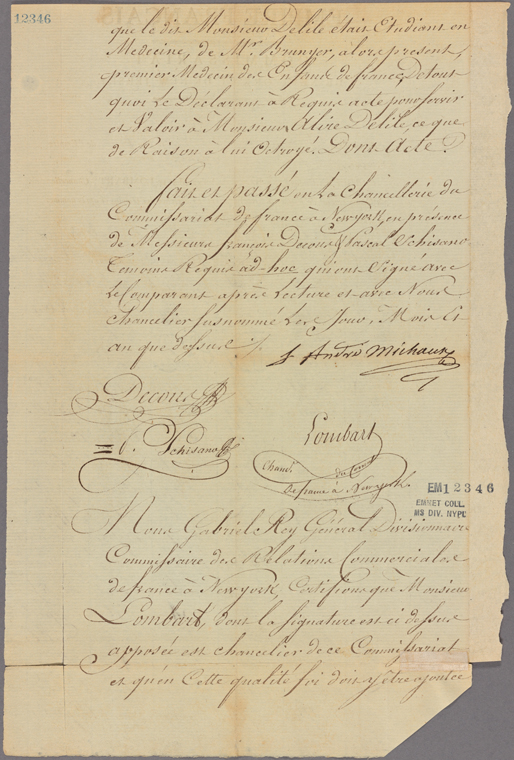 12346
que le dit Monsieur Delile était Etudiant en
Medecine, de Mr. Brunyer, alors present,
premier Medecin des Enfans de france, De tout
quoi Le Déclarant à Requis acte pour servir
et Valoir à Monsieur Alire Delile, ce que
de Raison à lui Octroyé. Dont Acte.
Fait et passé en La Chancellerie du
Commissariat de france à Newyork, en présence
de Messieurs françois Decous & Pascal Schisano
Temoins Requis ad-hoc qui ont Signé avec
Le Comparant après Lecture et avec Nous
chancelier susnommé Les Jour, Mois Et
an que dessus
André Michaux
Decous
Schisano
Lombart
Chanr. du Comt.
De france à New york
EM12346
EMMET COLL.
MS DIV. NYPL
Nous Gabriel Rey Général Divisionnaire
Commissaire des Relations Commerciales
de france à New york, Certifions que Monsieur
Lombart, dont la signature est ci dessus
apposée est chancelier de ce Commissariat
et qu'en Cette qualité foi doit y être ajoutée